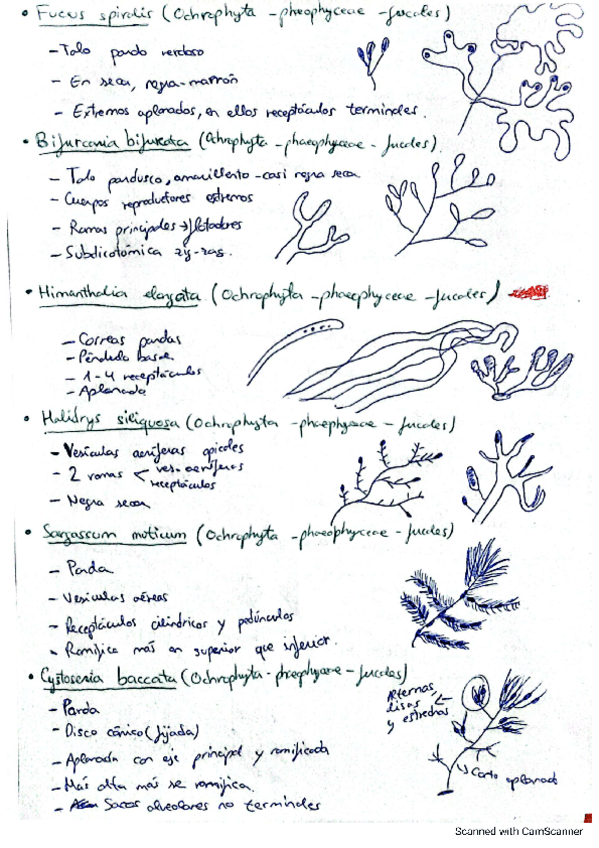 • Fucus spiralis (Ochrophyta - pheophyceae - fucales)
- Talo pardo verdoso
- En seca, negra-marrón
- Extremos aplanados, en ellos receptáculos terminales.
• Bifurcaria bifurcata (Ochrophyta - phaeophyceae - fucales).
- Talo pardusco, amarillento - casi negra seca
- Cuerpos reproductores extremos
- Ramas principales → flotadores
- Subdicotómica zig-zag.
• Himanthalia elongata (Ochrophyta - phaeophyceae - fucales)
- Correas pardas
- Péndulo basal
- 1-4 receptáculos
- Aplanada
• Halidrys siliquosa (Ochrophyta - phaephyceae - fucales)
- Vesículas aeríferas apicales
- 2 ramas < ves. aeríferas
receptáculos
- Negra seca
• Sargassum muticum (Ochrophyta - phaeophyceae - fucales)
- Parda
- Vesículas aéreas
- Receptáculos cilíndricos y pedúnculos
- Ramifica más en superior que inferior.
• Cystoseria baccata (Ochrophyta - phaeophyceae - fucales)
- Parda
- Disco cónico (fijada)
- Aplanada con eje principal y ramificada
- Más alta más se ramifica.
- Sacos alveolares no terminales
Alternas
lisas
y estrechas
Corto aplanado
Scanned with CamScanner